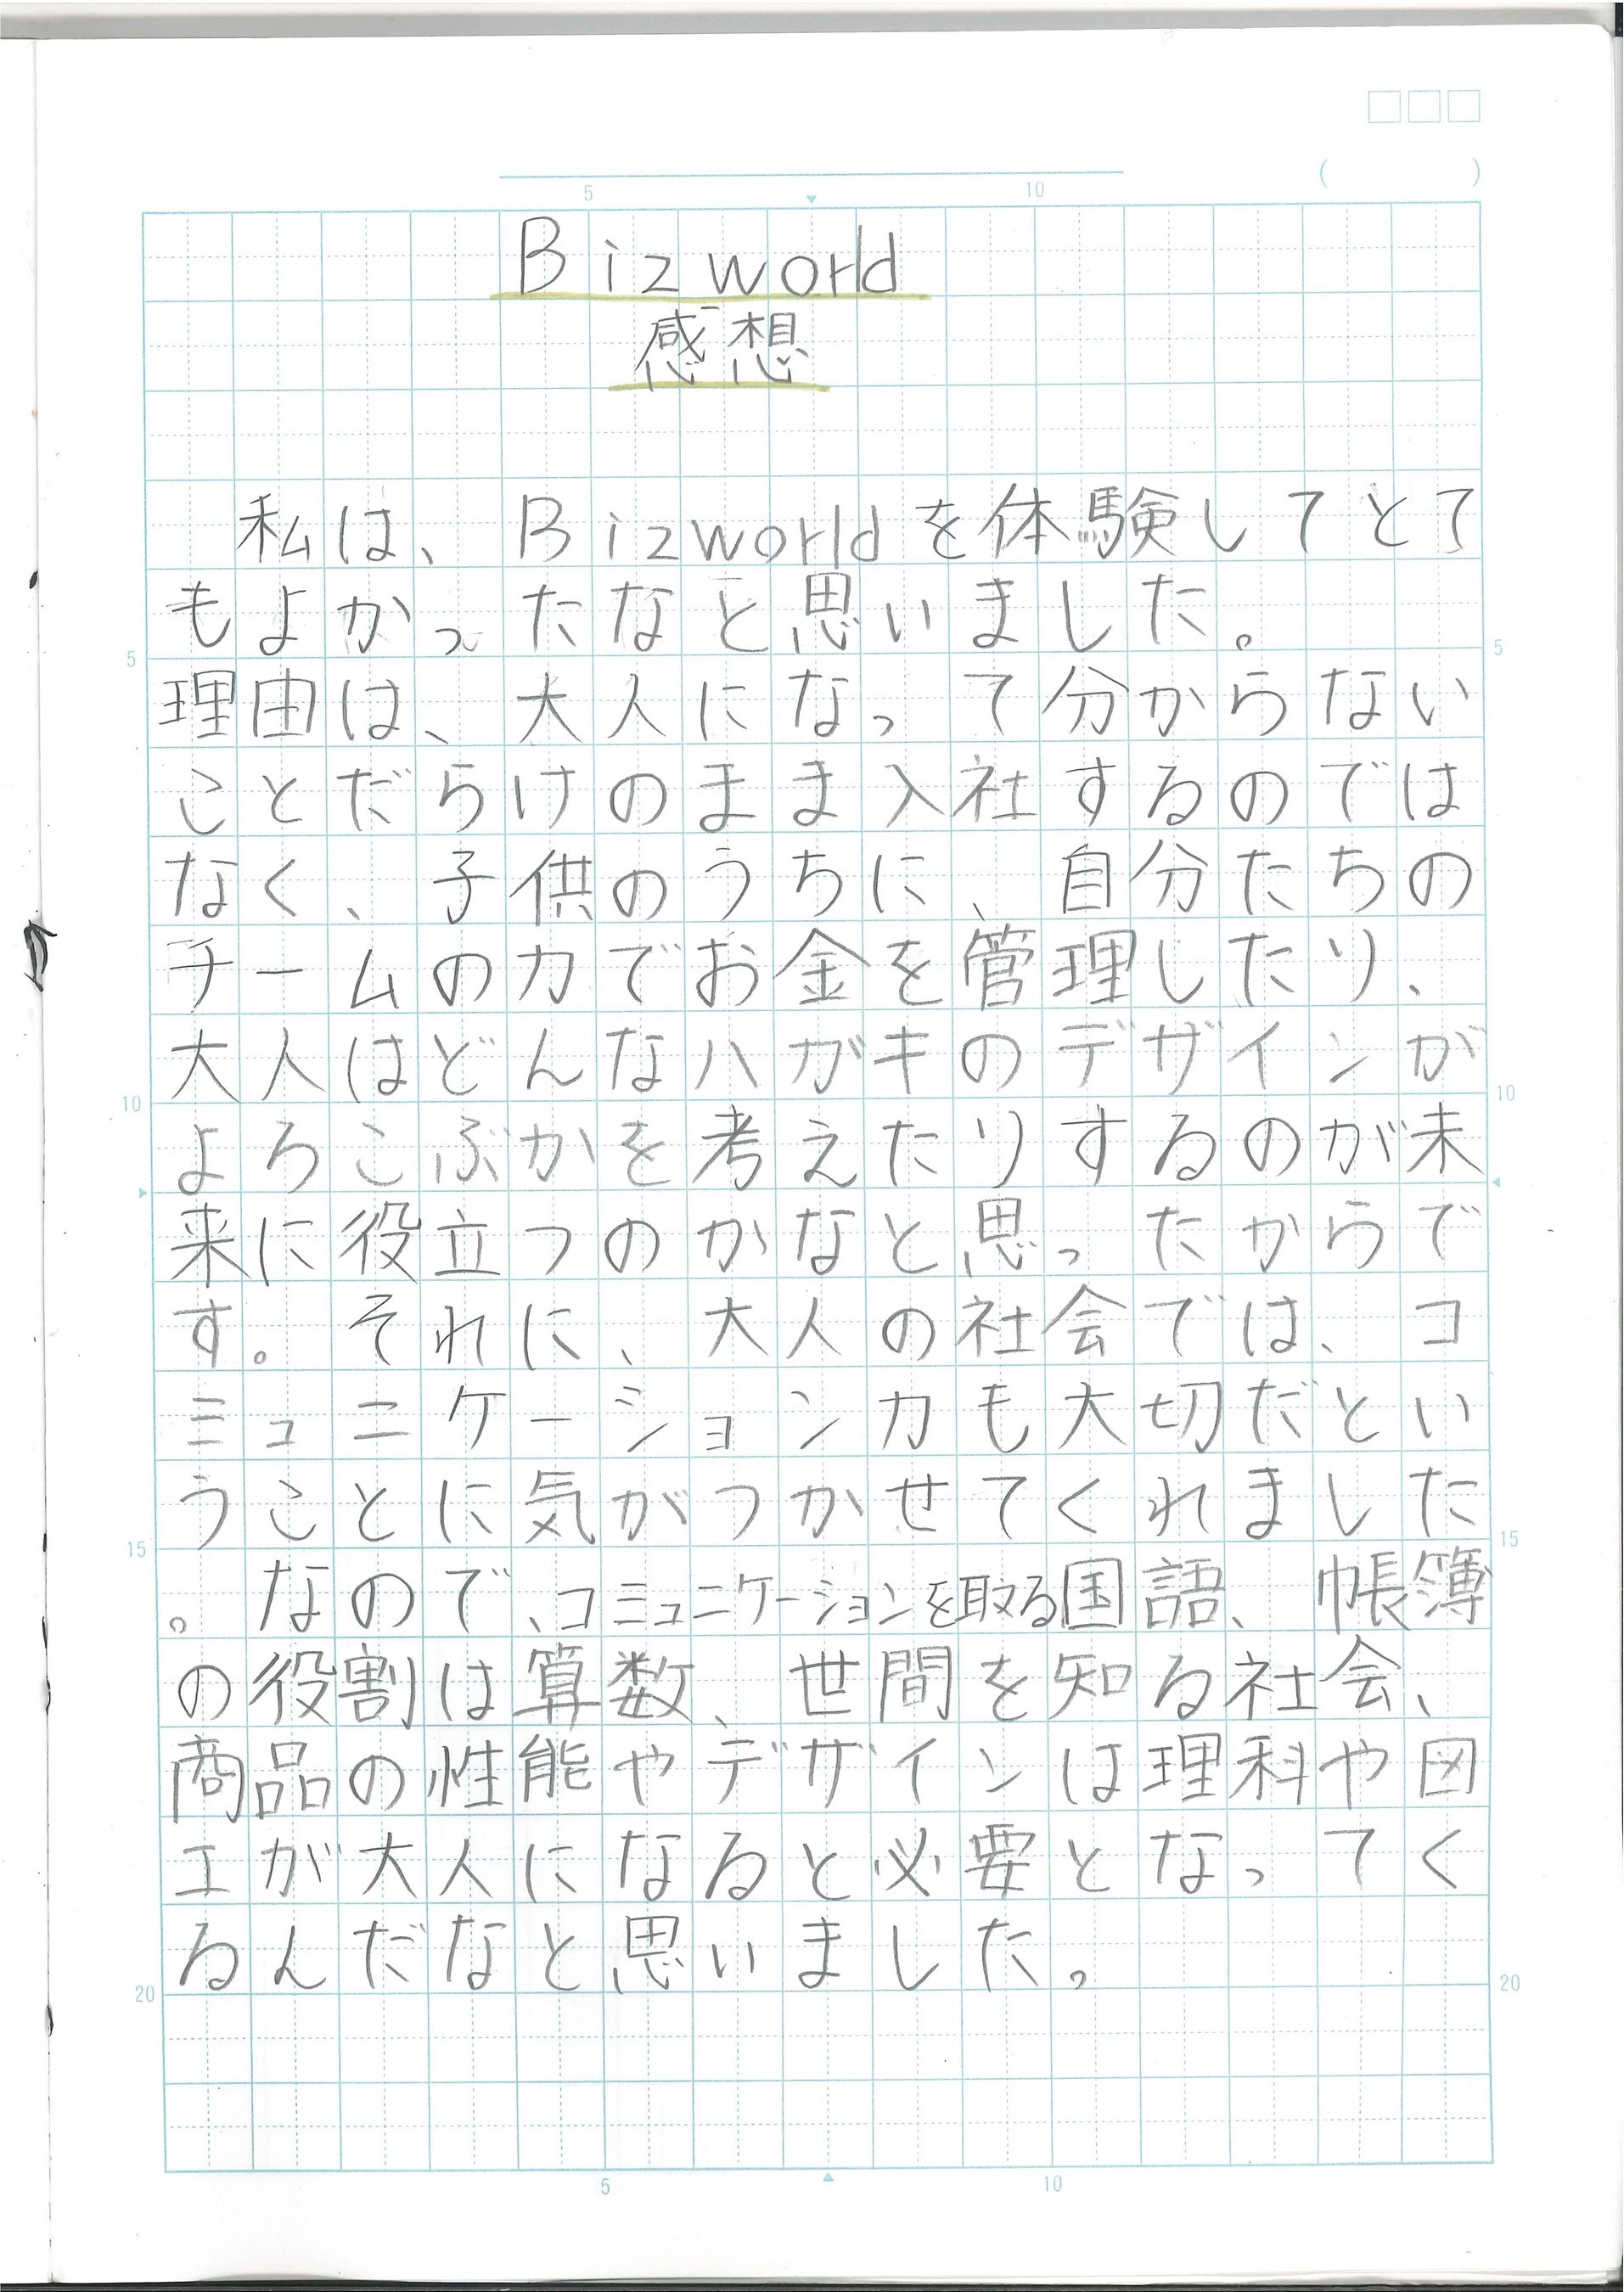 Bizworld
感想
私は、Bizworldを体験してとて
もよかったなと思いました。
理由は、大人になって分からない
ことだらけのまま入社するのでは
なく、子供のうちに、自分たちの
チームの力でお金を管理したり、
大人はどんなハガキのデザインが
よろこぶかを考えたりするのが未
来に役立つのかなと思ったからで
す。それに、大人の社会では、コ
ミュニケーション力も大切だとい
うことに気がつかせてくれました
。なので、コミュニケーションを取る国語、帳簿
の役割は算数、世間を知る社会、
商品の性能やデザインは理科や図
工が大人になると必要となってく
るんだなと思いました。
5
10
5
5
10
10
15
15
20
20
5
10